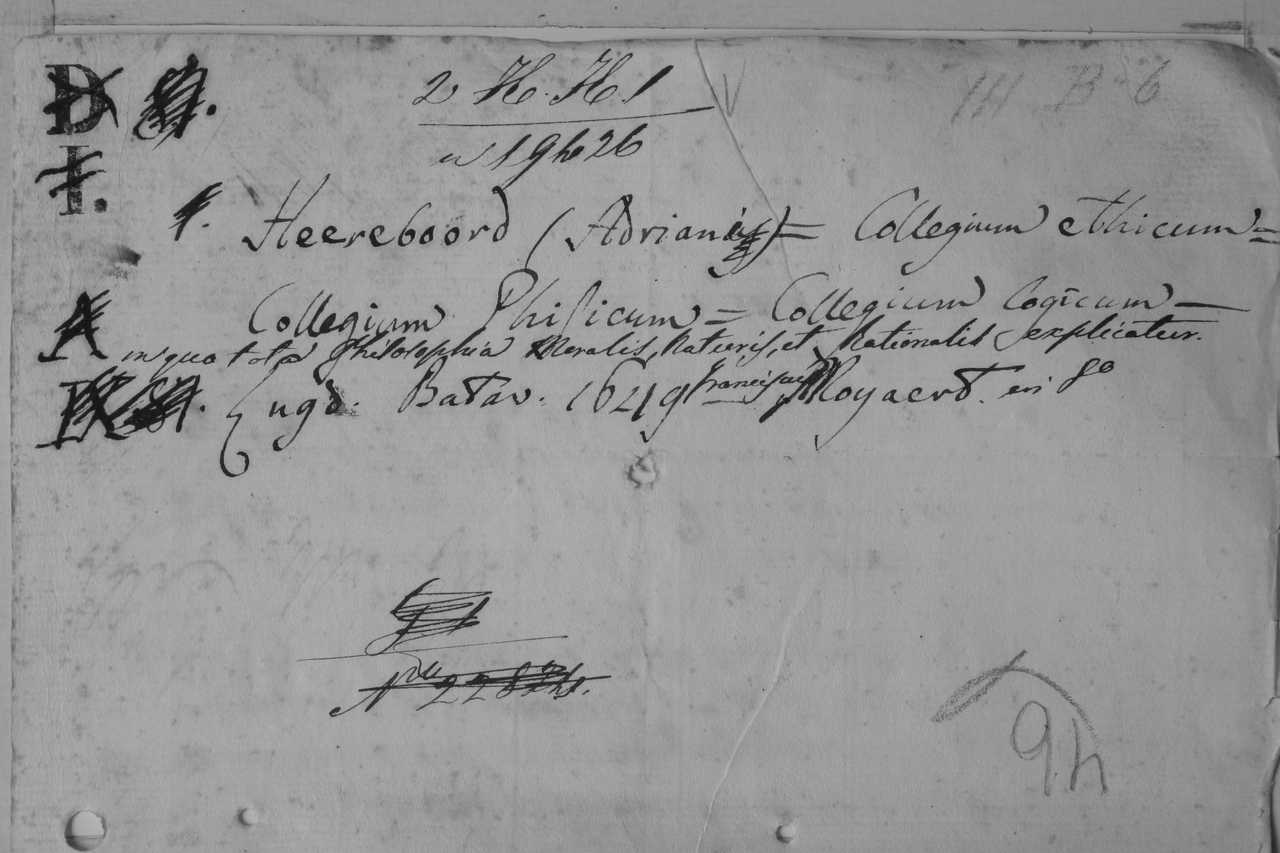 D
2 H. H. 1
III B-6
I.
1. Heereboord (Adriani) = Collegium ethicum =
A Collegium Phisicum = Collegium logicum —
in quo tota philosophia Moralis, Naturis, et Rationalis explicatur.
Lugd. Batav. 1649 Moyaerd. in 8o
94